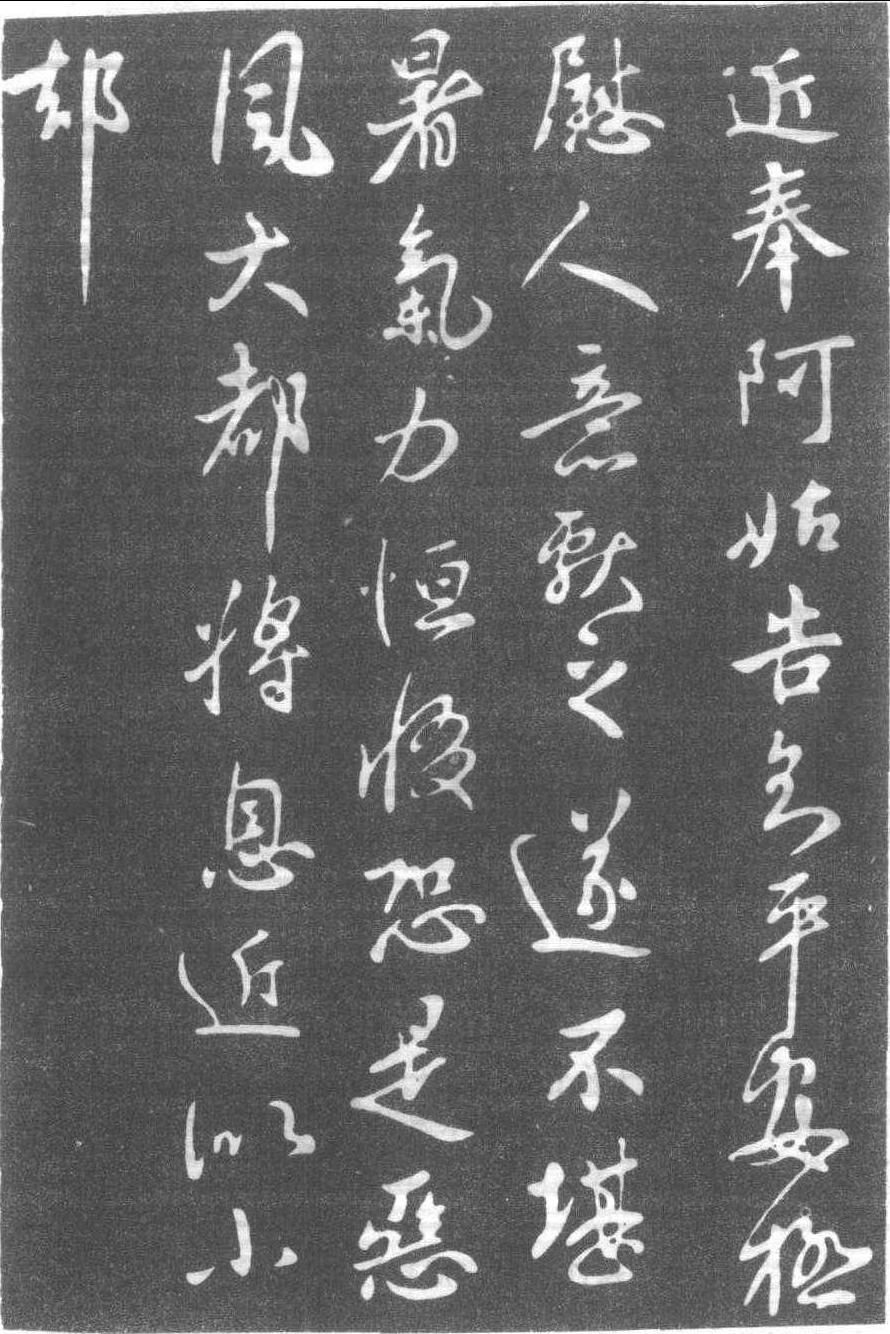 近奉阿姑告知平安極
慰人意獻之遂不堪
暑氣力恒惙恐是惡
風大都將息近以小
却